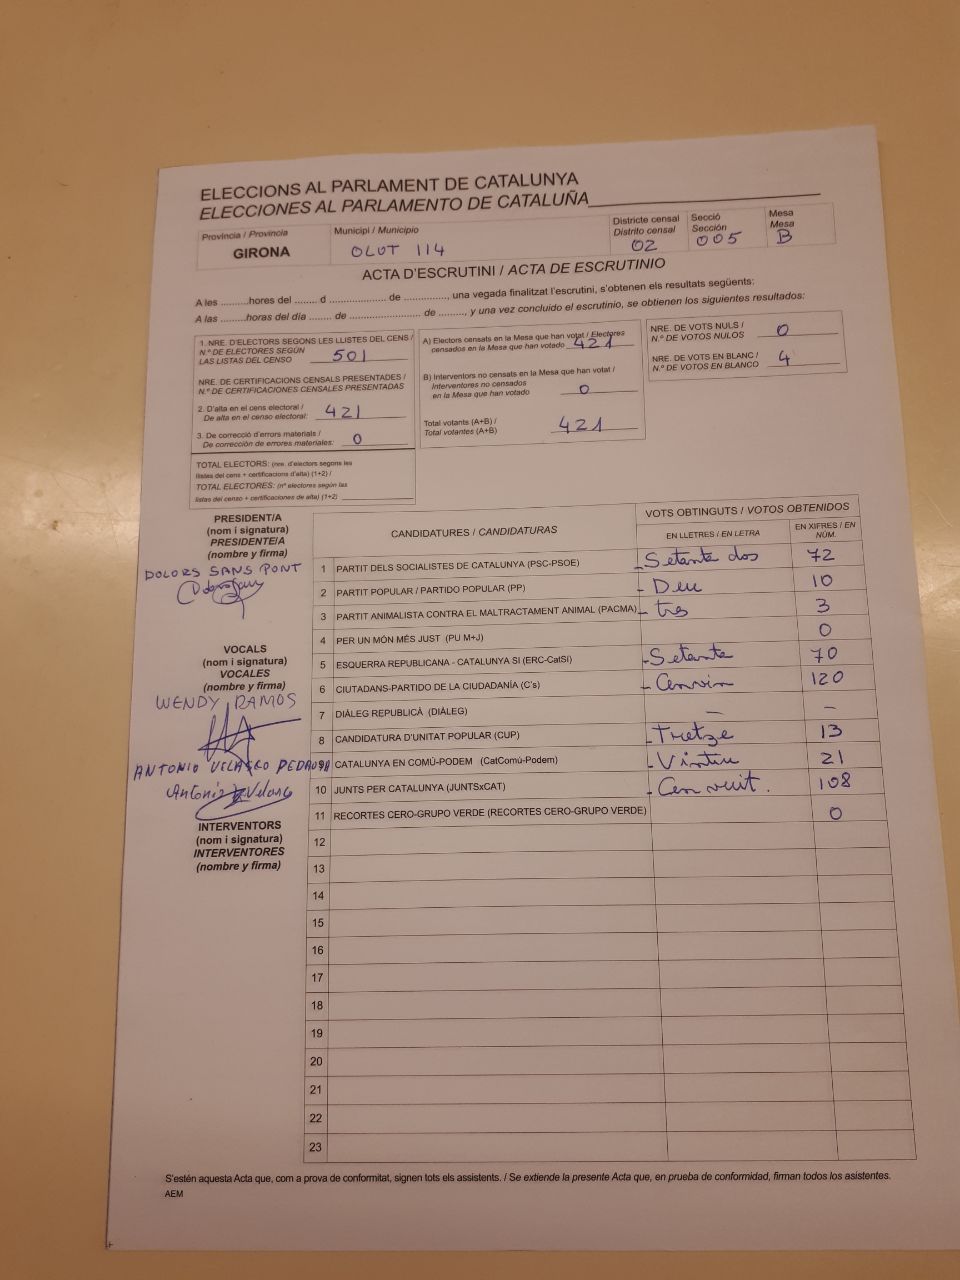 ELECCIONS AL PARLAMENT DE CATALUNYA
ELECCIONES AL PARLAMENTO DE CATALUÑA
Província / Provincia
GIRONA
Municipi / Municipio
OLOT 114
Districte censal
Distrito censal
02
Secció
Sección
005
Mesa
Mesa
B
ACTA D'ESCRUTINI / ACTA DE ESCRUTINIO
A les ..........hores del ........ d .................... de ..............., una vegada finalitzat l'escrutini, s'obtenen els resultats següents:
A las .........horas del día ........ de .......................... de ........., y una vez concluido el escrutinio, se obtienen los siguientes resultados:
1. NRE. D'ELECTORS SEGONS LES LLISTES DEL CENS /
N.º DE ELECTORES SEGÚN
LAS LISTAS DEL CENSO 501
NRE. DE CERTIFICACIONS CENSALS PRESENTADES /
N.º DE CERTIFICACIONES CENSALES PRESENTADAS
2. D'alta en el cens electoral /
De alta en el censo electoral: 421
3. De correcció d'errors materials /
De corrección de errores materiales: 0
TOTAL ELECTORS: (nre. d'electors segons les
llistes del cens + certificacions d'alta) (1+2) /
TOTAL ELECTORES: (nº electores según las
listas del censo + certificaciones de alta) (1+2)
A) Electors censats en la Mesa que han votat / Electores
censados en la Mesa que han votado 421
B) Interventors no censats en la Mesa que han votat /
Interventores no censados
en la Mesa que han votado 0
Total votants (A+B) /
Total votantes (A+B) 421
NRE. DE VOTS NULS /
N.º DE VOTOS NULOS 0
NRE. DE VOTS EN BLANC /
N.º DE VOTOS EN BLANCO 4
PRESIDENT/A
(nom i signatura)
PRESIDENTE/A
(nombre y firma)
DOLORS SANS PONT
VOCALS
(nom i signatura)
VOCALES
(nombre y firma)
WENDY RAMOS
ANTONIO VELASCO PEDROSA
Antonio Velasco
INTERVENTORS
(nom i signatura)
INTERVENTORES
(nombre y firma)
CANDIDATURES / CANDIDATURAS
VOTS OBTINGUTS / VOTOS OBTENIDOS
EN LLETRES / EN LETRA
EN XIFRES / EN NÚM.
1 PARTIT DELS SOCIALISTES DE CATALUNYA (PSC-PSOE) Setanta dos 72
2 PARTIT POPULAR / PARTIDO POPULAR (PP) - Deu 10
3 PARTIT ANIMALISTA CONTRA EL MALTRACTAMENT ANIMAL (PACMA) - tres 3
4 PER UN MÓN MÉS JUST (PU M+J) 0
5 ESQUERRA REPUBLICANA - CATALUNYA SÍ (ERC-CatSí) - Setanta 70
6 CIUTADANS-PARTIDO DE LA CIUDADANÍA (C's) - 120
7 DIÀLEG REPUBLICÀ (DIÀLEG) — –
8 CANDIDATURA D'UNITAT POPULAR (CUP) - Tretze 13
9 CATALUNYA EN COMÚ-PODEM (CatComú-Podem) - 21
10 JUNTS PER CATALUNYA (JUNTSxCAT) - Cen vuit. 108
11 RECORTES CERO-GRUPO VERDE (RECORTES CERO-GRUPO VERDE) 0
12
13
14
15
16
17
18
19
20
21
22
23
S'estén aquesta Acta que, com a prova de conformitat, signen tots els assistents. / Se extiende la presente Acta que, en prueba de conformidad, firman todos los asistentes.
AEM